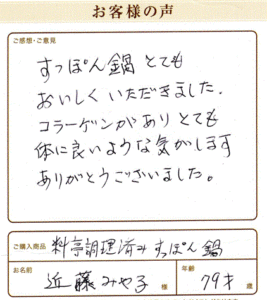 お客様の声
ご感想・ご意見
すっぽん鍋とても
おいしくいただきました.
コラーゲンがありとても
体に良いような気がします
ありがとうございました。
ご購入商品 料亭調理済みすっぽん鍋
お名前 近藤みや子 様 年齢 79才 歳